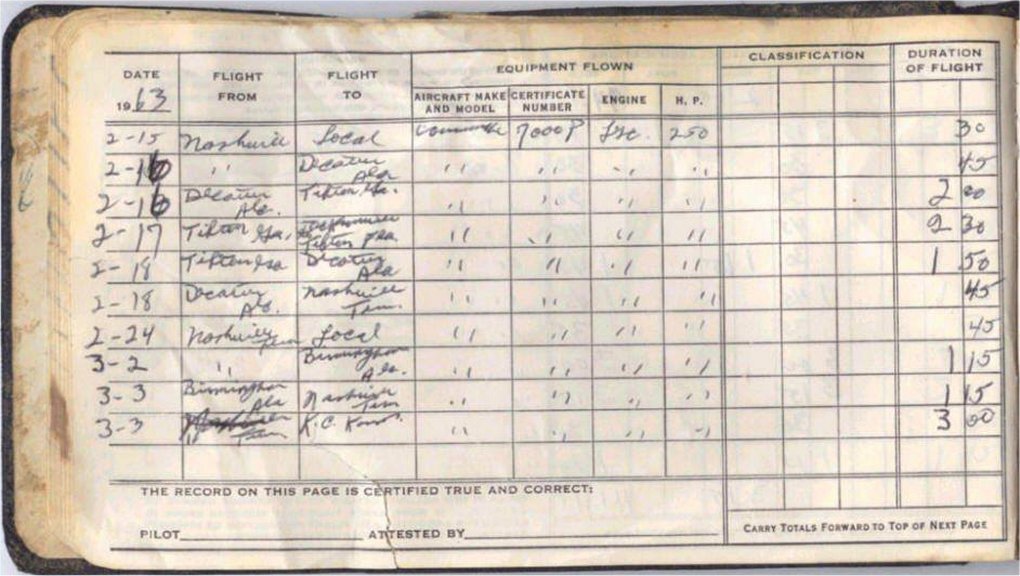 DATE FLIGHT FROM FLIGHT TO EQUIPMENT FLOWN CLASSIFICATION DURATION OF FLIGHT
1963 AIRCRAFT MAKE AND MODEL CERTIFICATE NUMBER ENGINE H. P.
2-15 Nashville Local 7000P Lyc. 250 30
2-16 " Decatur Ala " " " " 45
2-16 Decatur Ala. Tifton Ga. " " " " 2 00
2-17 Tifton Ga. Tifton " " " " 2 30
2-18 Tifton Ga Decatur Ala " " " " 1 50
2-18 Decatur Ala. Nashville Tenn. " " " " 45
2-24 Nashville Tenn Local " " " " 45
3-2 " Birmingham Ala. " " " " 1 15
3-3 Birmingham Ala Nashville Tenn " " " " 1 15
3-3 Tenn K.C. " " " " 3 00
THE RECORD ON THIS PAGE IS CERTIFIED TRUE AND CORRECT:
PILOT ATTESTED BY CARRY TOTALS FORWARD TO TOP OF NEXT PAGE